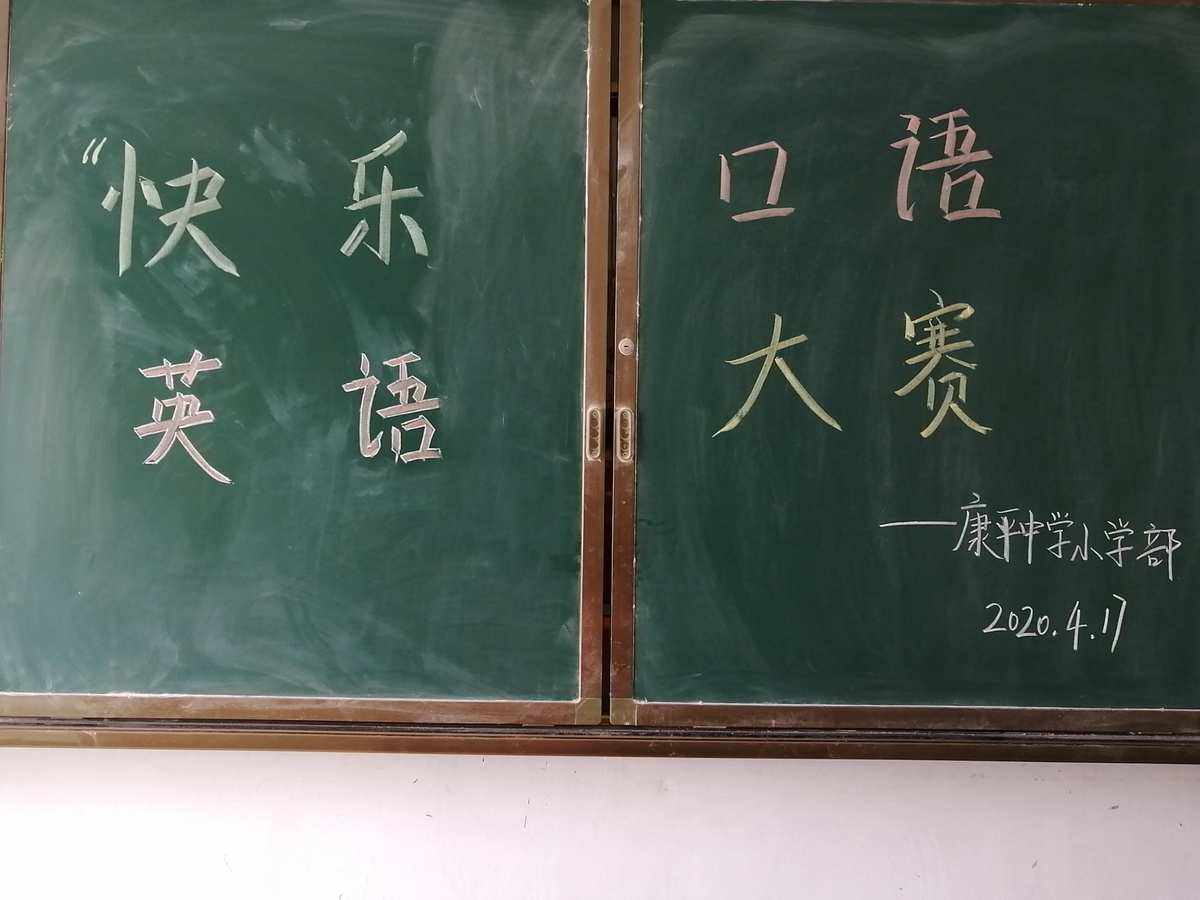 “快乐 口语
英语 大赛
——康平中学小学部
2020.4.17